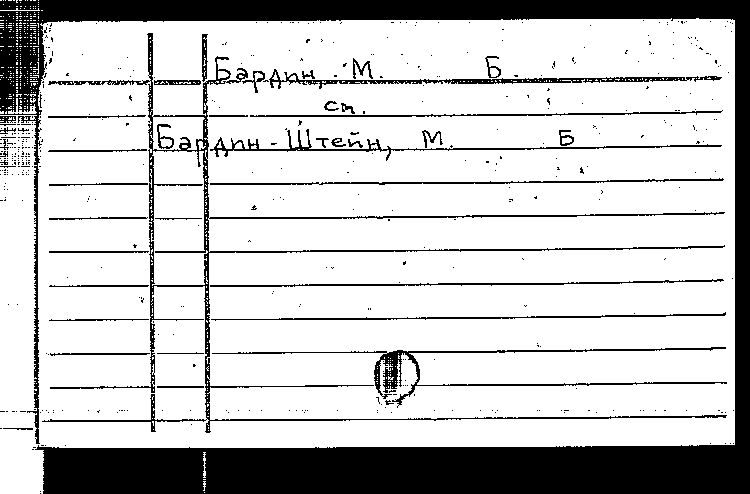 Бардин, М. Б.
см.
Бардин-Штейн, М. Б